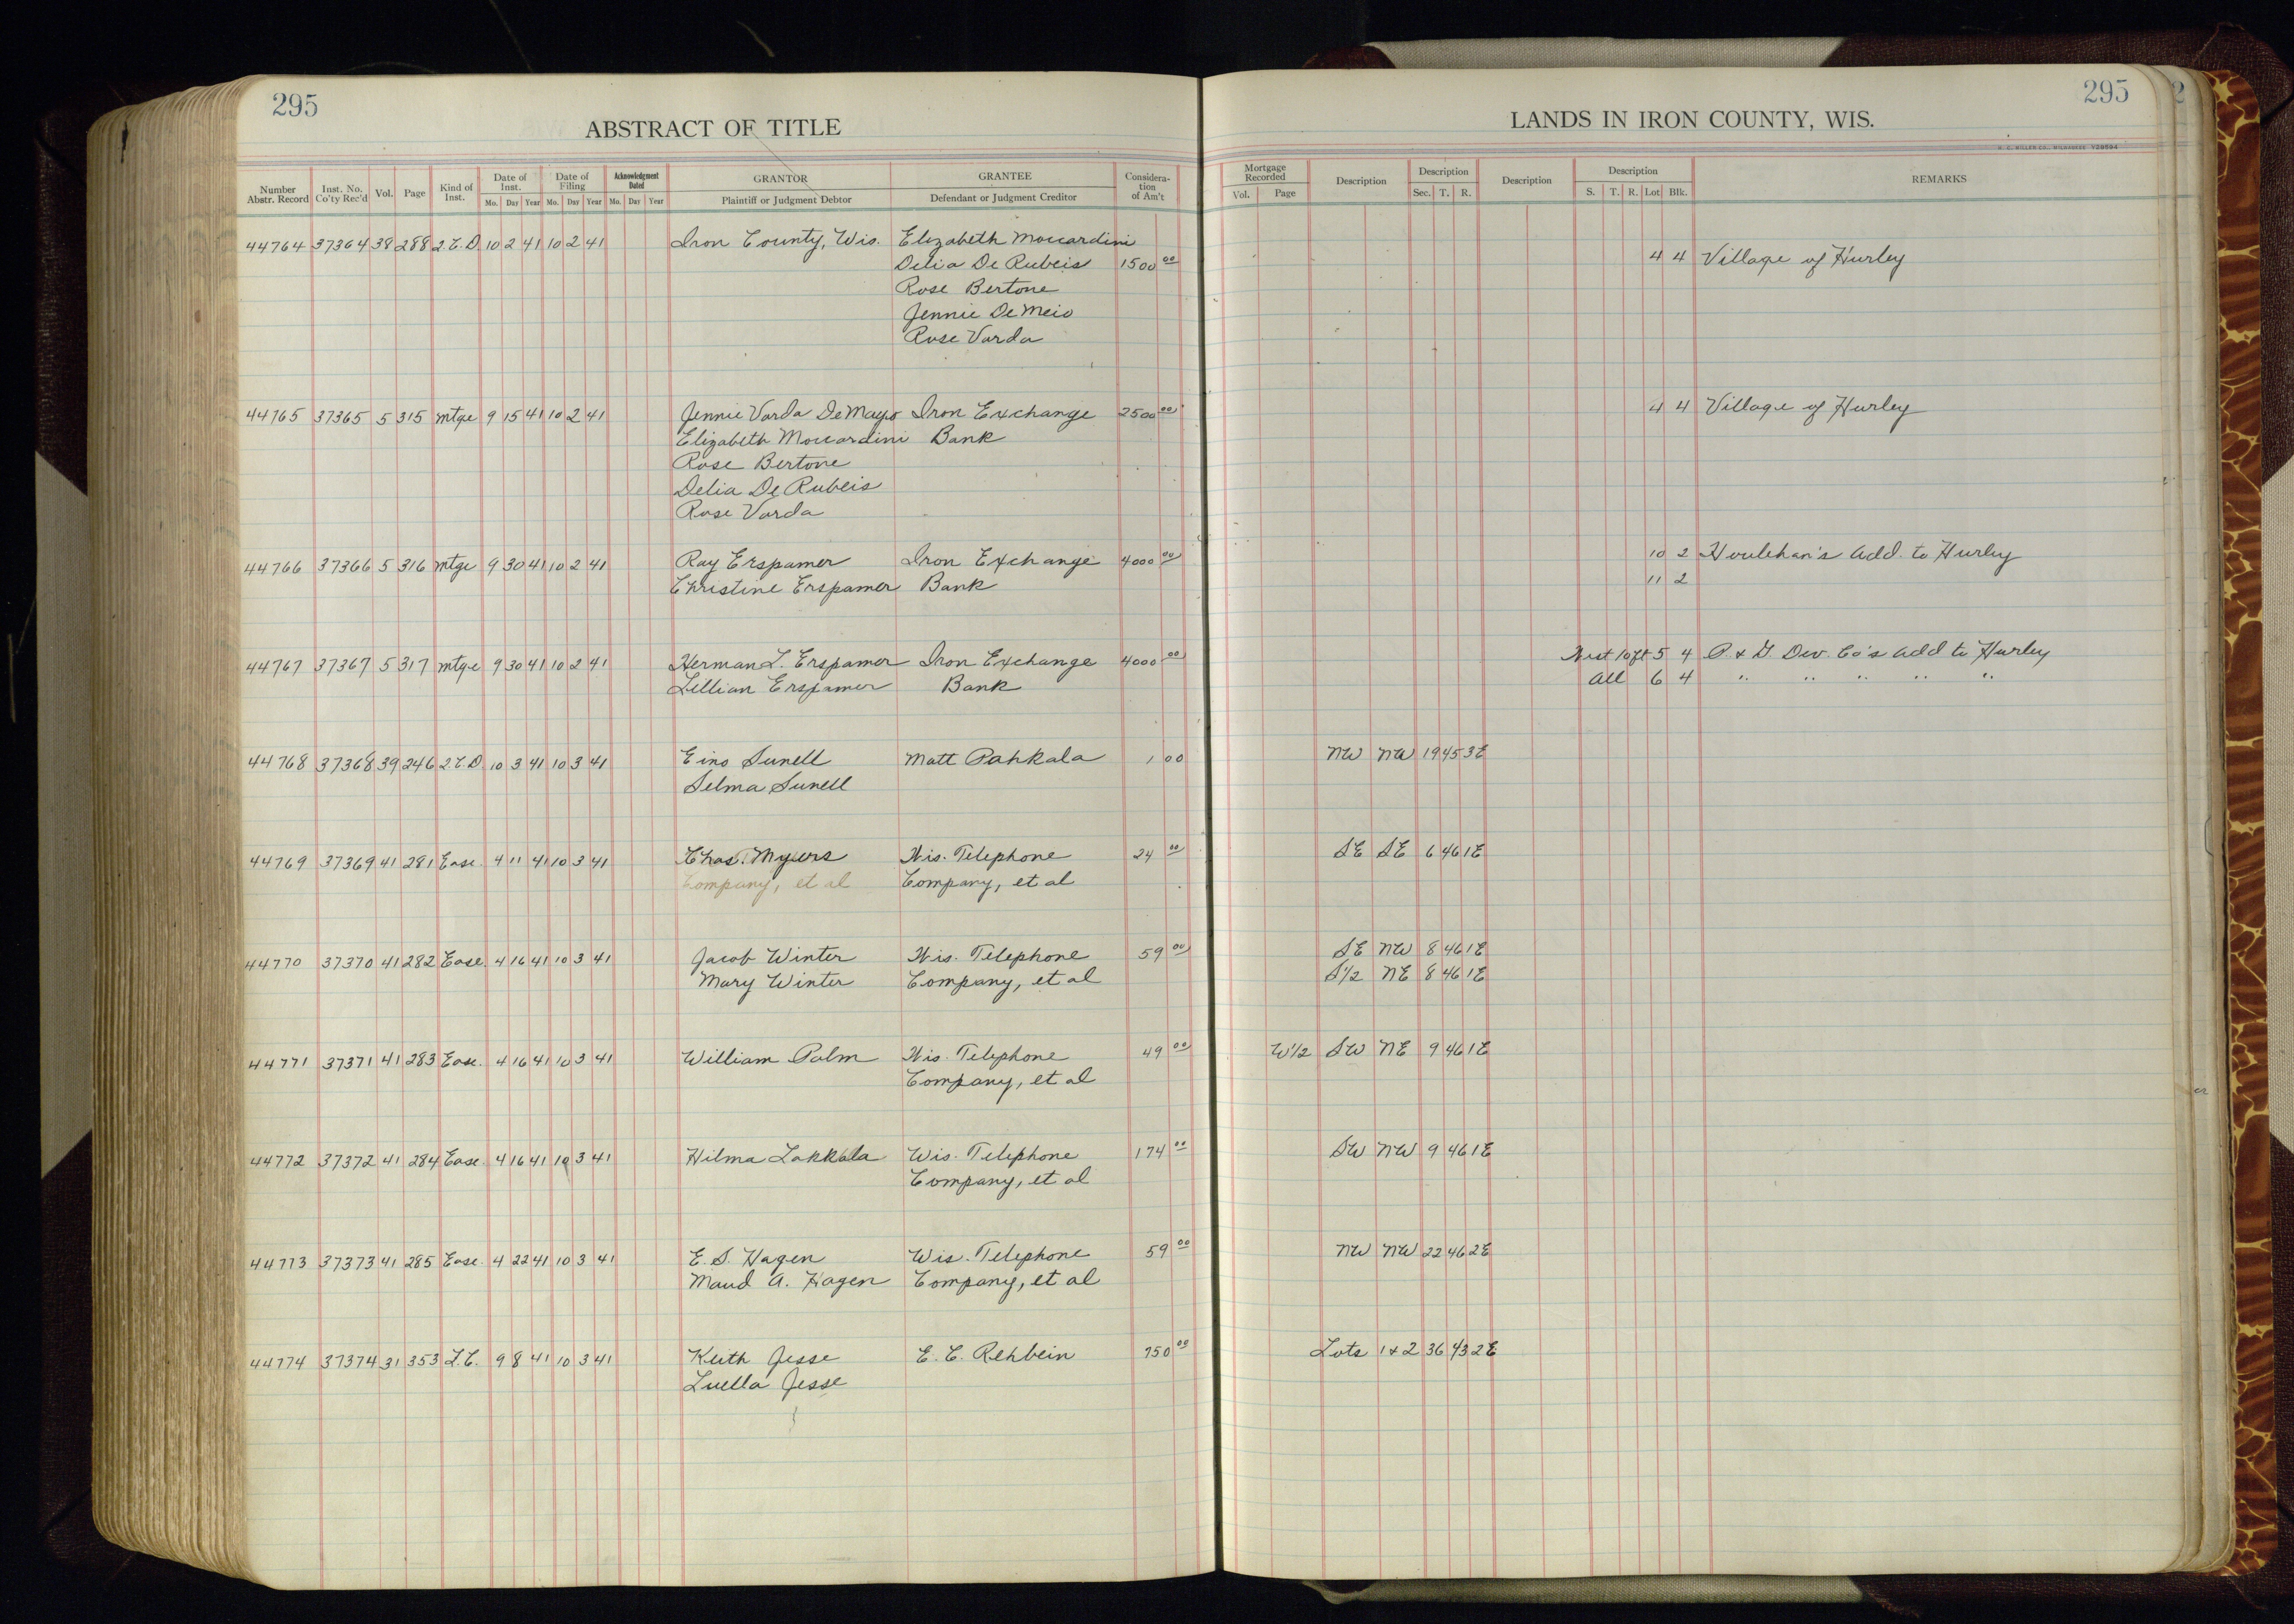 295
ABSTRACT OF TITLE
Number Abstr. Record Inst. No. Co'ty Rec'd Vol. Page Kind of Inst. Date of Inst. Mo. Day Year Date of Filing Mo. Day Year Acknowledgment Dated Mo. Day Year GRANTOR Plaintiff or Judgment Debtor GRANTEE Defendant or Judgment Creditor Consideration of Am't
44764 37364 38 288 2.C.D. 10 2 41 10 2 41 Iron County, Wis. Elizabeth Moccardini
Delia De Rubeis 1500 00
Rose Bertone
Jennie De Meio
Rose Varda
44765 37365 5 315 mtge 9 15 41 10 2 41 Jennie Varda De Mayo Iron Exchange 2500 00
Elizabeth Moccardini Bank
Rose Bertone
Delia De Rubeis
Rose Varda
44766 37366 5 316 mtge 9 30 41 10 2 41 Ray Erspamer Iron Exchange 4000 00
Christine Erspamer Bank
44767 37367 5 317 mtge 9 30 41 10 2 41 Herman L. Erspamer Iron Exchange 4000 00
Lillian Erspamer Bank
44768 37368 39 246 2.C.D. 10 3 41 10 3 41 Eino Sunell Matt Pahkala 1 00
Selma Sunell
44769 37369 41 281 Ease. 4 11 41 10 3 41 Chas. Myers Wis. Telephone 24 00
Company, et al Company, et al
44770 37370 41 282 Ease. 4 16 41 10 3 41 Jacob Winter Wis. Telephone 59 00
Mary Winter Company, et al
44771 37371 41 283 Ease. 4 16 41 10 3 41 William Palm Wis. Telephone 49 00
Company, et al
44772 37372 41 284 Ease. 4 16 41 10 3 41 Hilma Lakkala Wis. Telephone 174 00
Company, et al
44773 37373 41 285 Ease. 4 22 41 10 3 41 E. S. Hagen Wis. Telephone 59 00
Maud A. Hagen Company, et al
44774 37374 31 353 L.C. 9 8 41 10 3 41 Keith Jesse E. C. Rehbein 750 00
Luella Jesse
295
LANDS IN IRON COUNTY, WIS.
H. C. MILLER CO., MILWAUKEE V28594
Mortgage Recorded Vol. Page Description Description Sec. T. R. Description Description S. T. R. Lot Blk. REMARKS
4 4 Village of Hurley
4 4 Village of Hurley
10 2 Houlehan's Add. to Hurley
11 2
West 10ft 5 4 P. & G. Dev. Co's Add to Hurley
All 6 4 " " " " "
NW NW 19 45 3E
SE SE 6 46 1E
SE NW 8 46 1E
S1/2 NE 8 46 1E
W1/2 SW NE 9 46 1E
SW NW 9 46 1E
NW NW 22 46 2E
Lots 1 & 2 36 43 2E